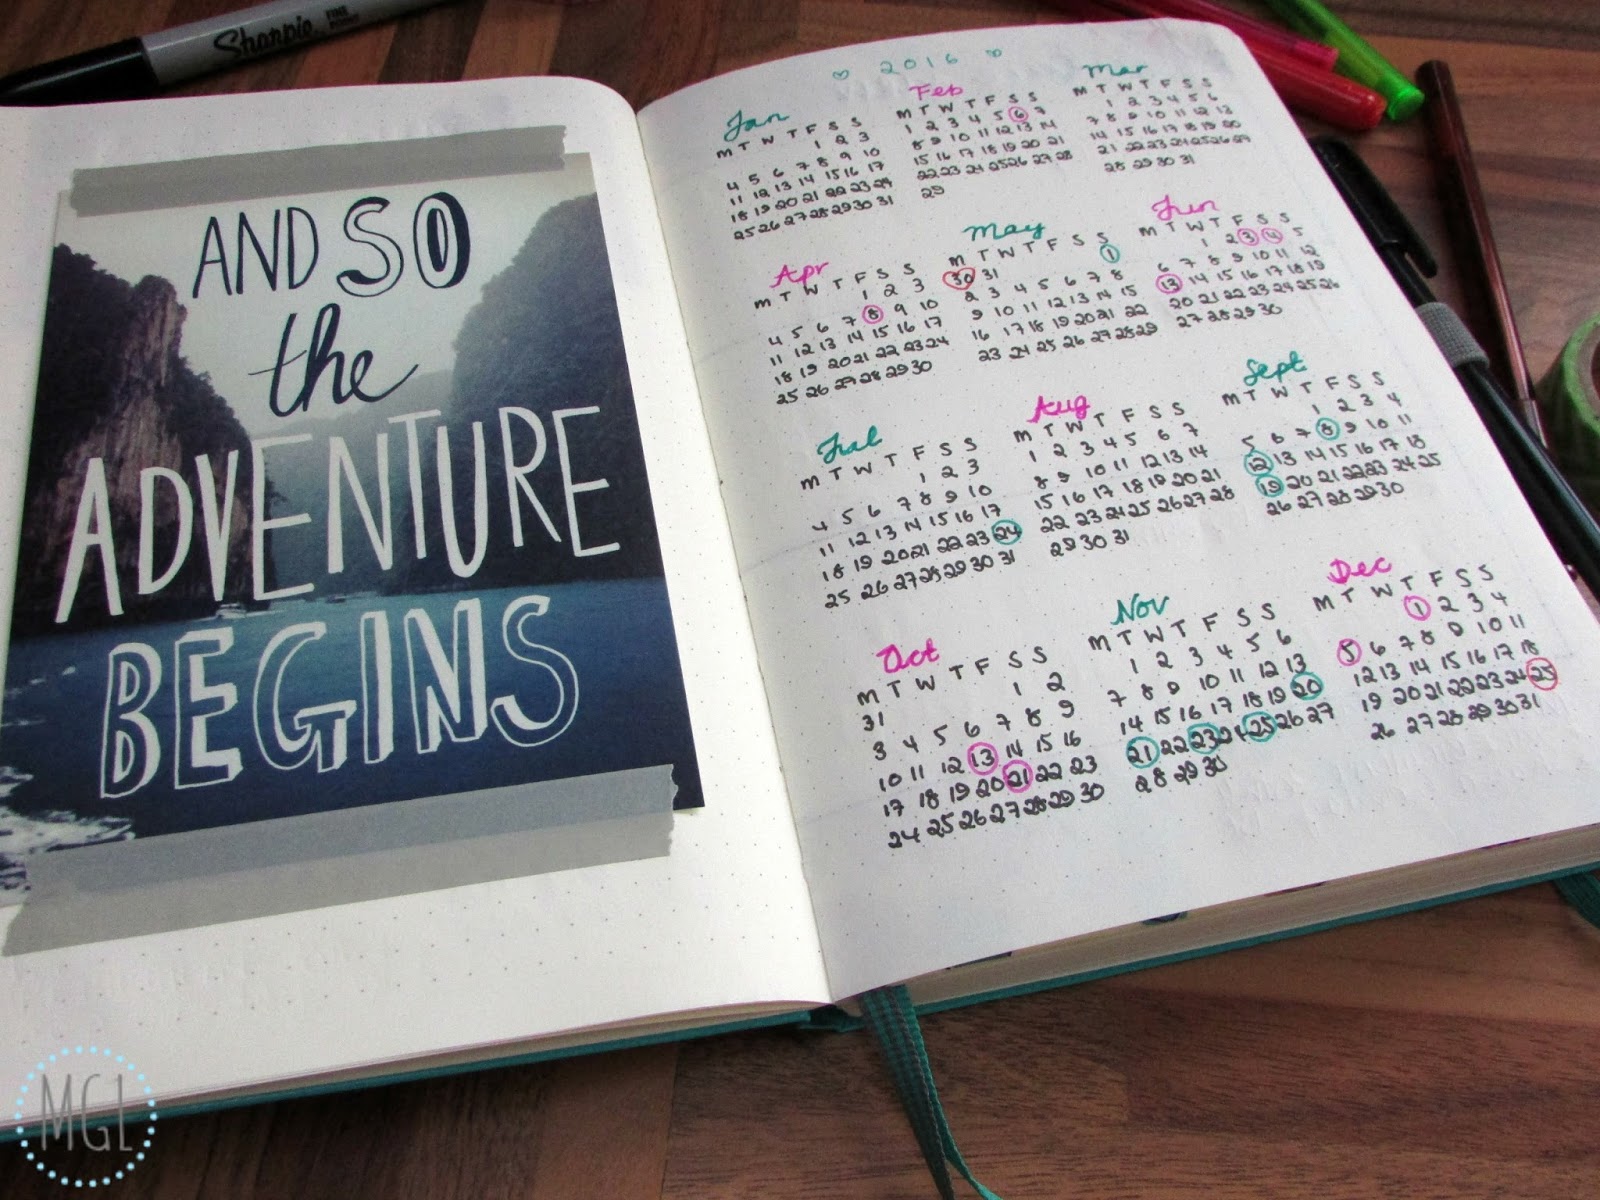 Sharpie FINE POINT
AND SO
the
ADVENTURE
BEGINS
2016
Jan
M T W T F S S
1 2 3
4 5 6 7 8 9 10
11 12 13 14 15 16 17
18 19 20 21 22 23 24
25 26 27 28 29 30 31
Feb
M T W T F S S
1 2 3 4 5 6 7
8 9 10 11 12 13 14
15 16 17 18 19 20 21
22 23 24 25 26 27 28
29
Mar
M T W T F S S
1 2 3 4 5 6
7 8 9 10 11 12 13
14 15 16 17 18 19 20
21 22 23 24 25 26 27
28 29 30 31
Apr
M T W T F S S
1 2 3
4 5 6 7 8 9 10
11 12 13 14 15 16 17
18 19 20 21 22 23 24
25 26 27 28 29 30
May
M T W T F S S
30 31 1
2 3 4 5 6 7 8
9 10 11 12 13 14 15
16 17 18 19 20 21 22
23 24 25 26 27 28 29
Jun
M T W T F S S
1 2 3 4 5
6 7 8 9 10 11 12
13 14 15 16 17 18 19
20 21 22 23 24 25 26
27 28 29 30
Jul
M T W T F S S
1 2 3
4 5 6 7 8 9 10
11 12 13 14 15 16 17
18 19 20 21 22 23 24
25 26 27 28 29 30 31
Aug
M T W T F S S
1 2 3 4 5 6 7
8 9 10 11 12 13 14
15 16 17 18 19 20 21
22 23 24 25 26 27 28
29 30 31
Sept
M T W T F S S
1 2 3 4
5 6 7 8 9 10 11
12 13 14 15 16 17 18
19 20 21 22 23 24 25
26 27 28 29 30
Oct
M T W T F S S
31 1 2
3 4 5 6 7 8 9
10 11 12 13 14 15 16
17 18 19 20 21 22 23
24 25 26 27 28 29 30
Nov
M T W T F S S
1 2 3 4 5 6
7 8 9 10 11 12 13
14 15 16 17 18 19 20
21 22 23 24 25 26 27
28 29 30
Dec
M T W T F S S
1 2 3 4
5 6 7 8 9 10 11
12 13 14 15 16 17 18
19 20 21 22 23 24 25
26 27 28 29 30 31
MGL